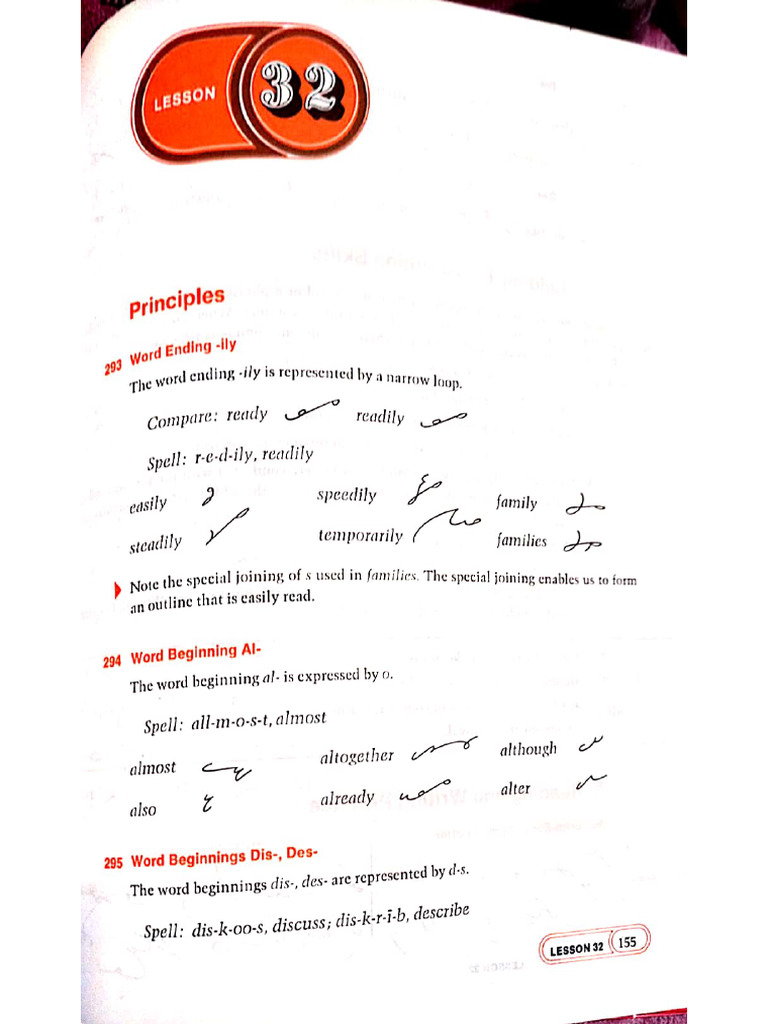 LESSON 32
Principles
293 Word Ending -ily
The word ending -ily is represented by a narrow loop.
Compare: ready readily
Spell: r-e-d-ily, readily
easily speedily family
steadily temporarily families
Note the special joining of s used in families. The special joining enables us to form
an outline that is easily read.
294 Word Beginning Al-
The word beginning al- is expressed by o.
Spell: all-m-o-s-t, almost
almost altogether although
also already alter
295 Word Beginnings Dis-, Des-
The word beginnings dis-, des- are represented by d-s.
Spell: dis-k-oo-s, discuss; dis-k-r-ī-b, describe
LESSON 32 155